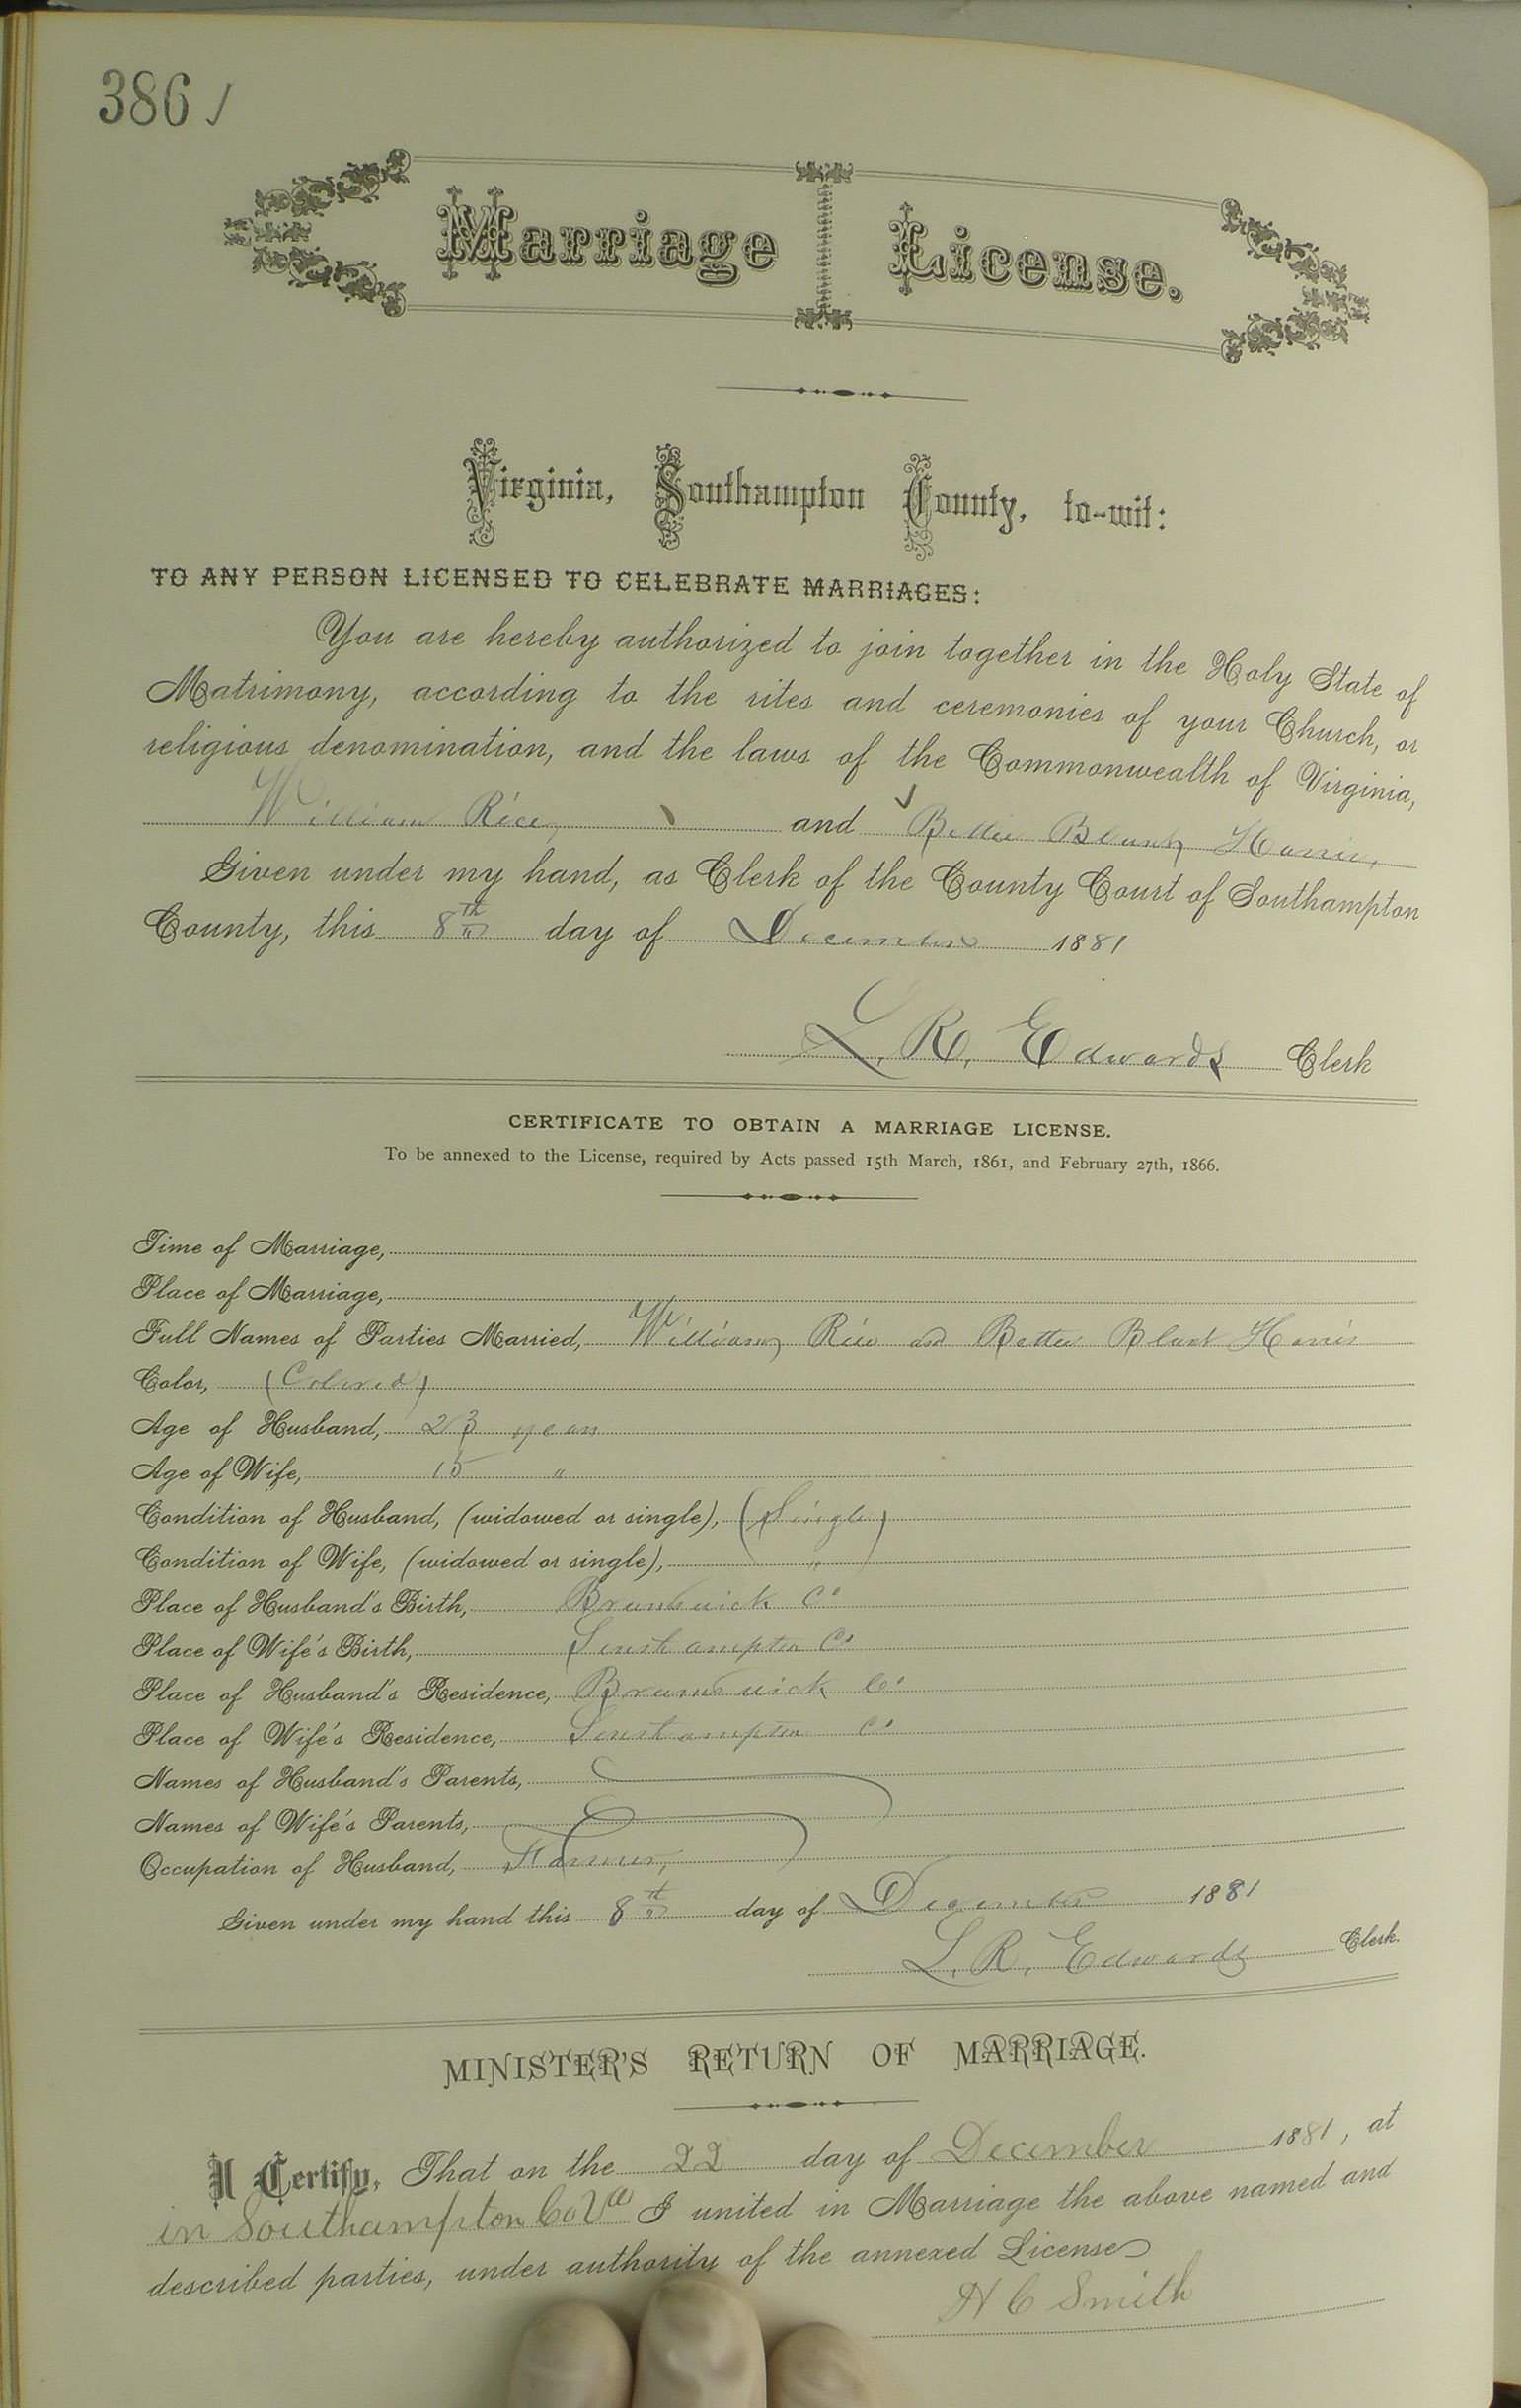 386
Marriage License.
Virginia, Southampton County, to-wit:
TO ANY PERSON LICENSED TO CELEBRATE MARRIAGES:
You are hereby authorized to join together in the Holy State of
Matrimony, according to the rites and ceremonies of your Church, or
religious denomination, and the laws of the Commonwealth of Virginia,
William Rice, and Bettie Blunt Harris,
Given under my hand, as Clerk of the County Court of Southampton
County, this 8th day of December 1881
L. R. Edwards Clerk
CERTIFICATE TO OBTAIN A MARRIAGE LICENSE.
To be annexed to the License, required by Acts passed 15th March, 1861, and February 27th, 1866.
Time of Marriage,
Place of Marriage,
Full Names of Parties Married, William Rice and Bettie Blunt Harris
Color, (Colored)
Age of Husband, 23 years
Age of Wife, 15 "
Condition of Husband, (widowed or single), (Single)
Condition of Wife, (widowed or single), "
Place of Husband's Birth, Brunswick Co
Place of Wife's Birth, Southampton Co
Place of Husband's Residence, Brunswick Co
Place of Wife's Residence, Southampton Co
Names of Husband's Parents,
Names of Wife's Parents,
Occupation of Husband, Farmer,
Given under my hand this 8th day of December 1881
L. R. Edwards Clerk.
MINISTER'S RETURN OF MARRIAGE.
I Certify, That on the 22 day of December 1881, at
in Southampton Co Va I united in Marriage the above named and
described parties, under authority of the annexed License
H C Smith